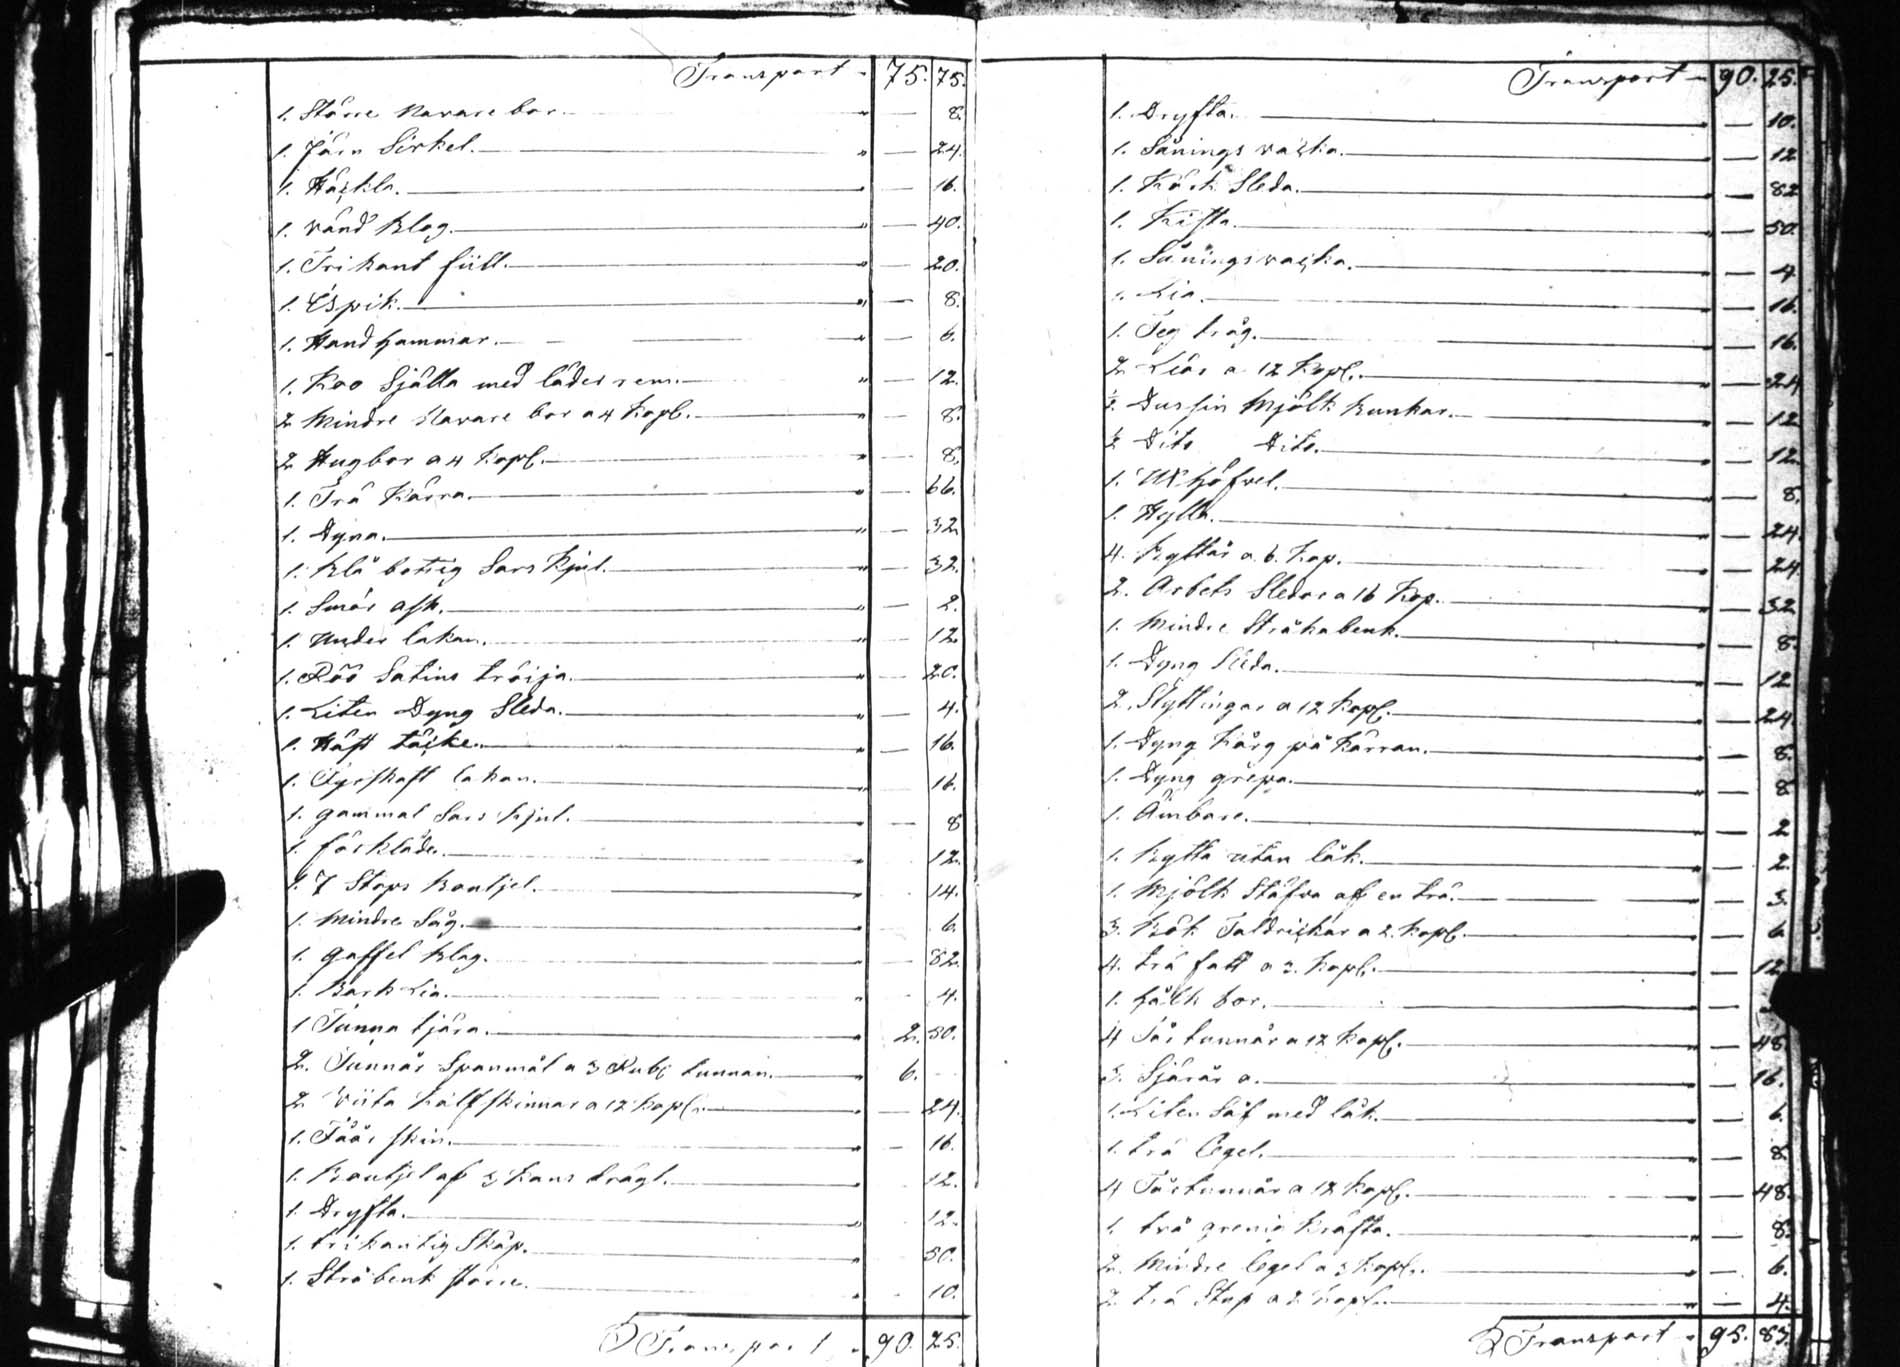 Transport - 75. 75.
1. Större Navare bor. " — 8.
1. Järn Sirkel. " — 24.
1. Häckla. " — 16.
1. Vänd Klog. " — 40.
1. Trikant fiill. " — 20.
1. Espik. " — 8.
1. Hand hammar. " — 6.
1. Koo Själla med läder rem. " — 12.
2 Mindre Navare bor a 4 Kopl. " — 8.
2 Hugbor a 4 Kopl. " — 8.
1. Trä Kärra. " — 66.
1. Dyna. " — 32
1. Klä Sars Kjol. " — 32.
1. Smör ask. " — 2.
1. Under lakan. " — 12.
1. Röö Satins tröija. " — 20.
1. Liten Dyng Släda. " — 4.
1. Häst täcke. " — 16.
1. Fyrskaft lakan. " — 16.
1. gammal Sars Kjol. — 8
1. förkläde. 12.
1. 7 Stops Kantjel. " 14.
1. Mindre Såg. " 6.
1. gaffel Klog. 82.
1. Bark Lia. " 4.
1 Tunna tjära. 2. 50.
2. Tunnår Spanmål a 3 Rubl tunnan. " 6.
2 Viita kalfskinnar a 12 Kopl. " — 24.
1. Fåår skin. " — 16.
1. Kantjel af 3 Kans drägt. " 12.
1. Dryfta. " 12.
1. trikantig Skåp. " 50.
1. Sträbenk större. " 10.
Transport - 90. 25.
Transport - 90. 25.
1. Dryfta. " — 10.
1. Sånings vacka. " — 12
1. Körk Släda. " — 82
1. Kista. " — 50.
1. Såningsvacka. " — 4.
1. Lia. " — 16.
1. Deg tråg. " — 16.
2 Liar a 12 Kopl. " — 24
½ Dussin Mjölk Bunkar. " — 12
½ Dito Dito. " — 12.
1. höfvel. " — 8.
1. Hylla. " — 24.
4. Byttår a 6 Kop. — 24.
2. Arbets Slädar a 16 Kop. " — 32
1. Mindre Sträkabenk. " — 8.
1. Dyng Släda. " — 12
2. Slyttingar a 12 Kopl. " — 24.
1. Dyng Kårg på Kärran. " — 8.
1. Dyng grepa. " — 8
1. Ämbare. " — 2
1. Bytta utan låk. " — 2.
1. Mjölk Stäfva af en trä. " — 3.
3. Kök Taldrickar a 2. Kopl. " — 6
4. trä fatt a 3. Kopl. " — 12
1. bor. " —
4 Tårtunnår a 12 Kopl. " — 48
3. Sjårår a. " — 16.
1. Liten Såf med låk. " — 6.
1. trä legel. " — 8.
4 Tårtunnår a 12 Kopl. " — 48.
1. trä grenig Kräfta. " — 8.
2. Mindre legel a 3 Kopl. " — 6.
2. trä Stop a 2 Kopl. " — 4.
Transport - 95. 83.